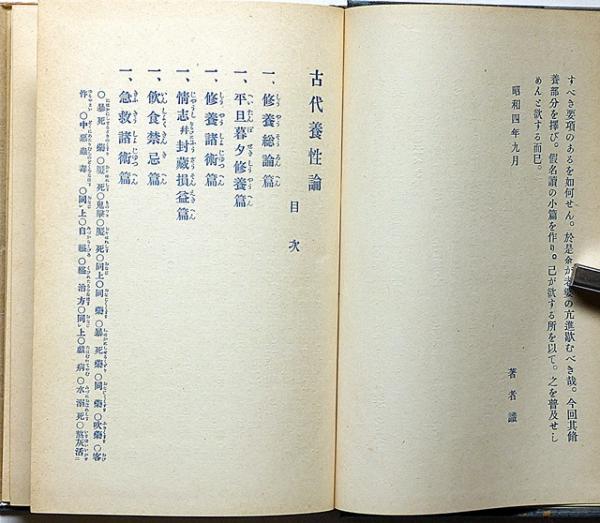 すべき要項のあるを如何せん。於是余が老婆の亢進歇むべき哉。今回其脩
養部分を擇び。假名讀の小篇を作り。己が欲する所を以て。之を普及せし
めんと欲する而巳。
昭和四年九月
著者識
古代養性論
目次
一、修養総論篇
一、平旦暮夕修養篇
一、修養諸術篇
一、情志幷封蔵損益篇
一、飲食禁忌篇
一、急救諸術篇
〇暴死藥〇魘死〇鬼擊〇魘死〇同上〇同藥〇暴死藥〇同藥〇吹藥〇客
忤〇中惡蠱毒〇同上〇自縊〇縊治方〇同上〇戱病〇水溺死〇熬灰活